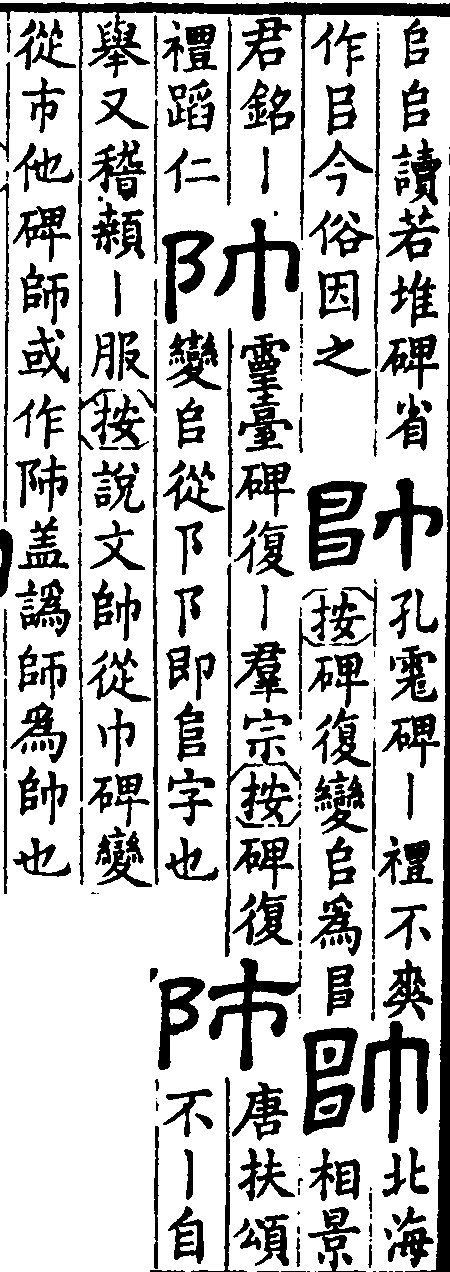 𠂤𠂤讀若堆碑省
作㠯今俗因之
帥
孔竉碑丨禮不爽
按碑復變𠂤爲㠯
帥
北海
相景
君銘丨
禮蹈仁
帥
靈臺碑復丨羣宗按碑復
變𠂤從阝阝即𨸏字也
師
唐扶頌
不丨自
舉又稽顙丨服按說文帥從巾碑變
從市他碑師或作盖譌師爲帥也